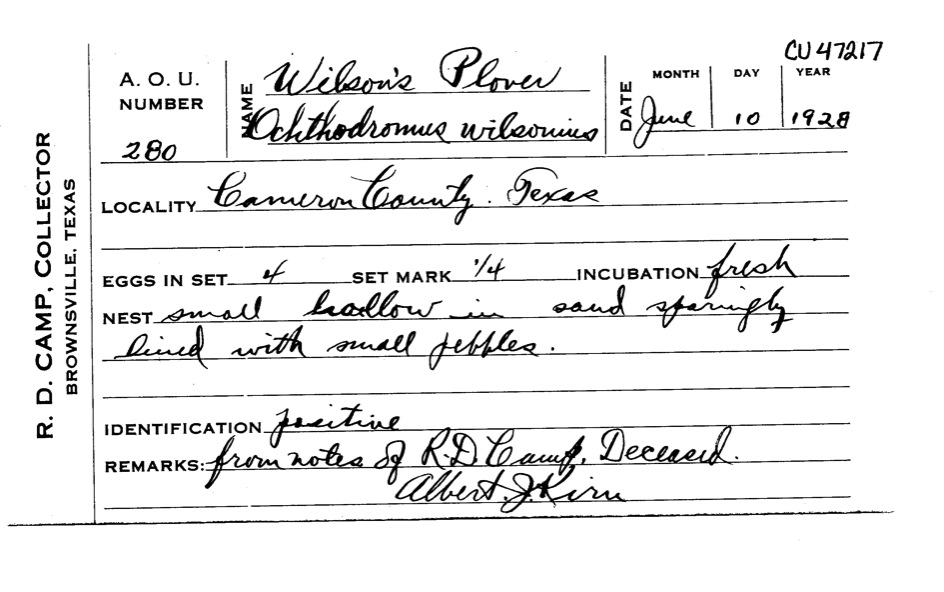 CU 47217
A. O. U. NUMBER 280
NAME Wilson's Plover
Ochthodromus wilsonius
DATE MONTH DAY YEAR
June 10 1928
R. D. CAMP, COLLECTOR
BROWNSVILLE, TEXAS
LOCALITY Cameron County. Texas
EGGS IN SET 4 SET MARK 1/4 INCUBATION fresh
NEST small hollow in sand sparingly
lined with small pebbles.
IDENTIFICATION positive
REMARKS: from notes of R.D. Camp, Deceased.
Albert. J. Kirn